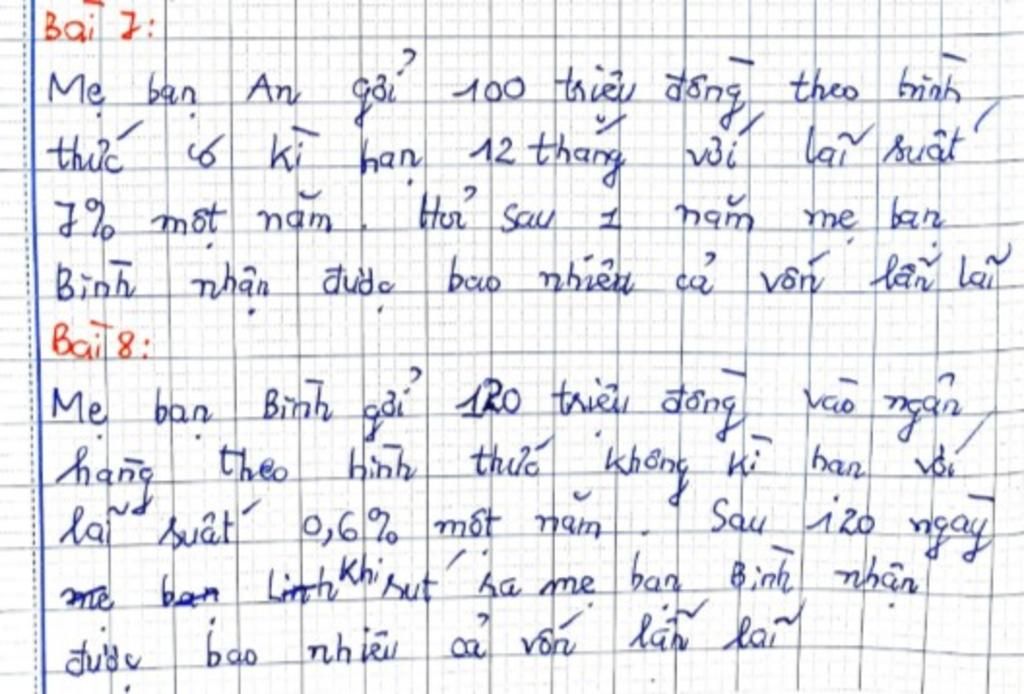 Bài 7:
Mẹ bạn An gởi 100 triệu đồng theo hình
thức có kì hạn 12 tháng với lãi suất
7% một năm. Hỏi sau 1 năm mẹ bạn
Bình nhận được bao nhiêu cả vốn lẫn lãi
Bài 8:
Mẹ bạn Bình gởi 120 triệu đồng vào ngân
hàng theo hình thức không kì hạn với
lãi suất 0,6% một năm. Sau 120 ngày
mẹ bạn Linh khi rút ra mẹ bạn Bình nhận
được bao nhiêu cả vốn lẫn lãi